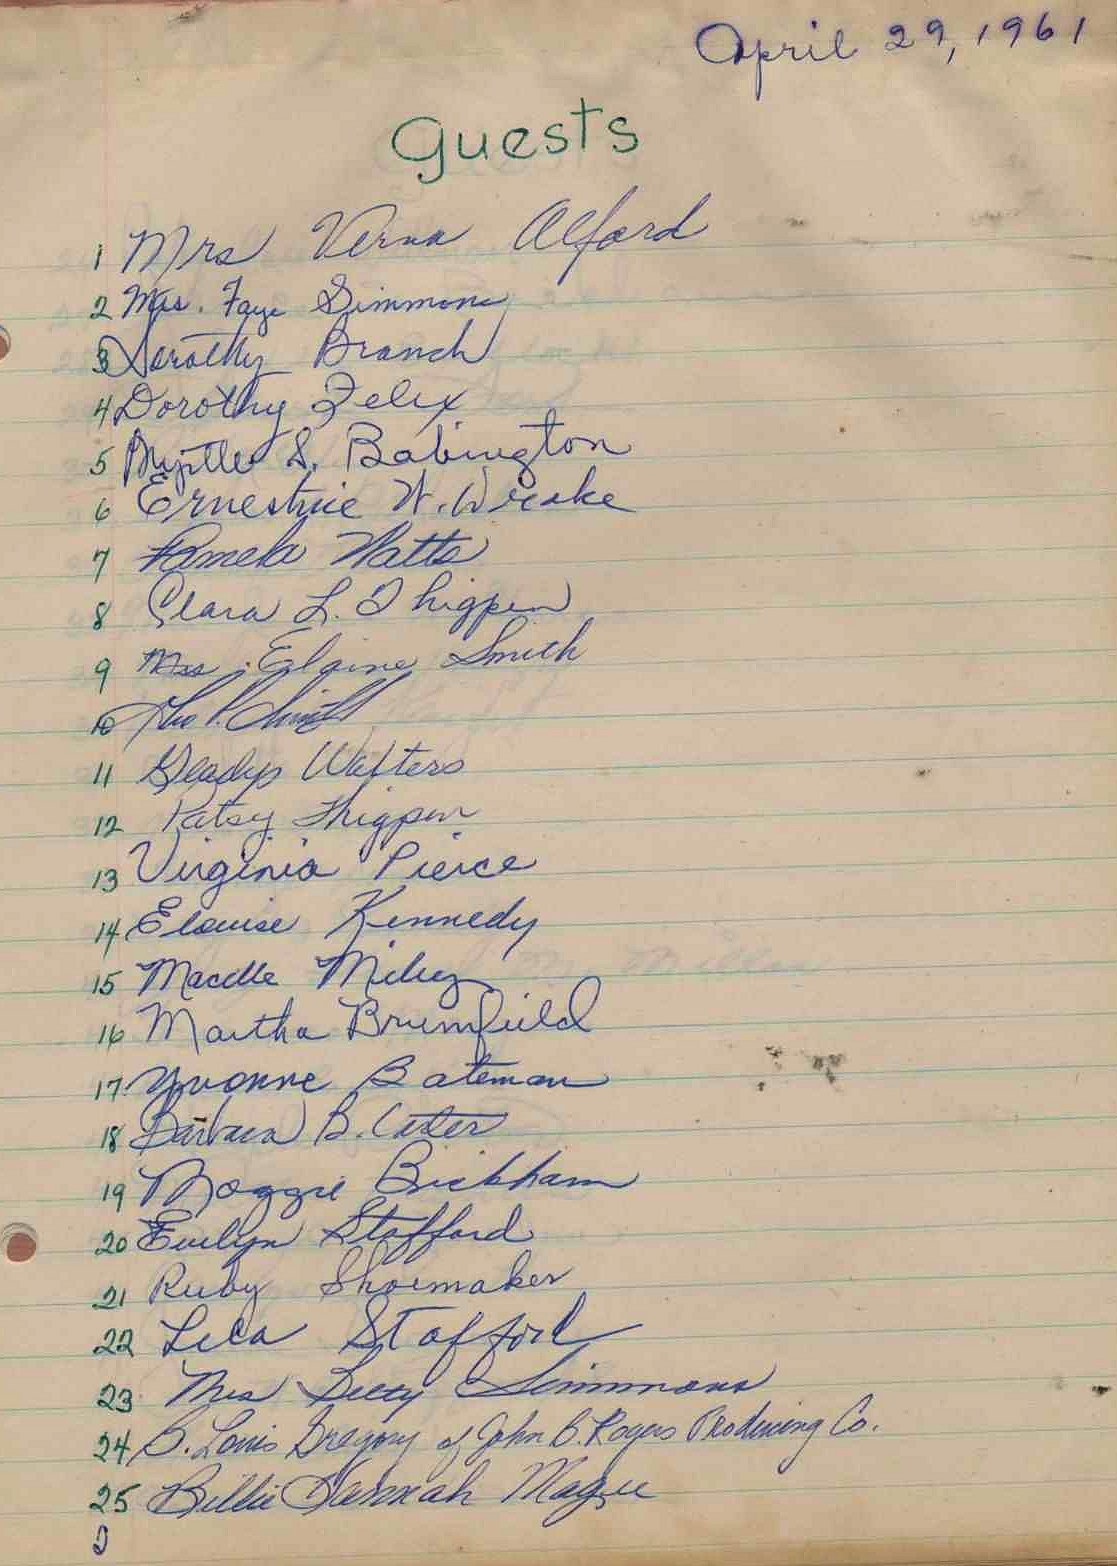 April 29, 1961
Guests
1 Mrs Verna Alford
2 Mrs. Faye Simmons
3 Dorothy Branch
4 Dorothy Felix
5 Myrtle S. Babington
6 Ernestine W. Drake
7 Pamela Watts
8 Clara L. Thigpen
9 Mrs. Elaine Smith
10
11 Gladys Walters
12 Patsy Thigpen
13 Virginia Pierce
14 Elouise Kennedy
15 Macille
16 Martha Brumfield
17 Yvonne Bateman
18 Barbara B. Carter
19 Maggie Bickham
20 Evelyn Stafford
21 Ruby Shoemaker
22 Lela Stafford
23 Mrs Betty Simmons
24 B. Louis Gregory of John B. Rogers Producing Co.
25 Billie Hannah Magee